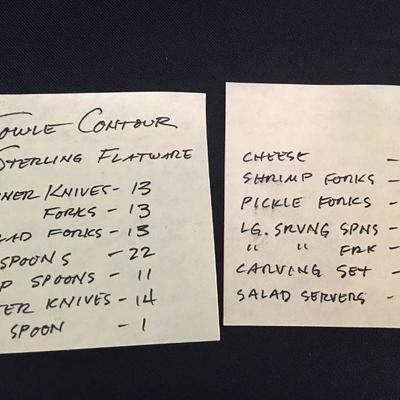 TOWLE CONTOUR
STERLING FLATWARE
NER KNIVES - 13
FORKS - 13
AD FORKS - 13
SPOONS - 22
P SPOONS - 11
TER KNIVES - 14
SPOON - 1
CHEESE -
SHRIMP FORKS -
PICKLE FORKS -
LG. SRVNG SPNS -
" " FRK -
CARVING SET -
SALAD SERVERS -